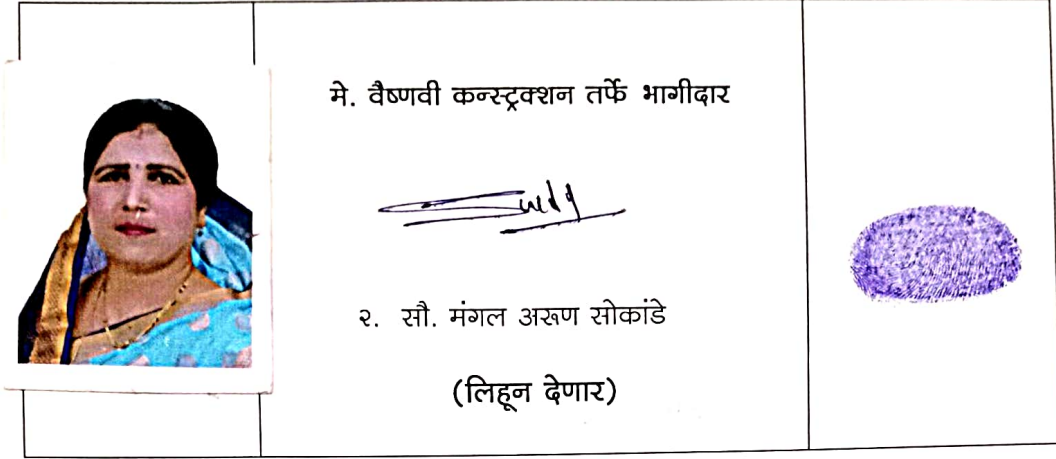 मे. वैष्णवी कन्स्ट्रक्शन तर्फे भागीदार
२. सौ. मंगल अरूण सोकांडे
(लिहून देणार)